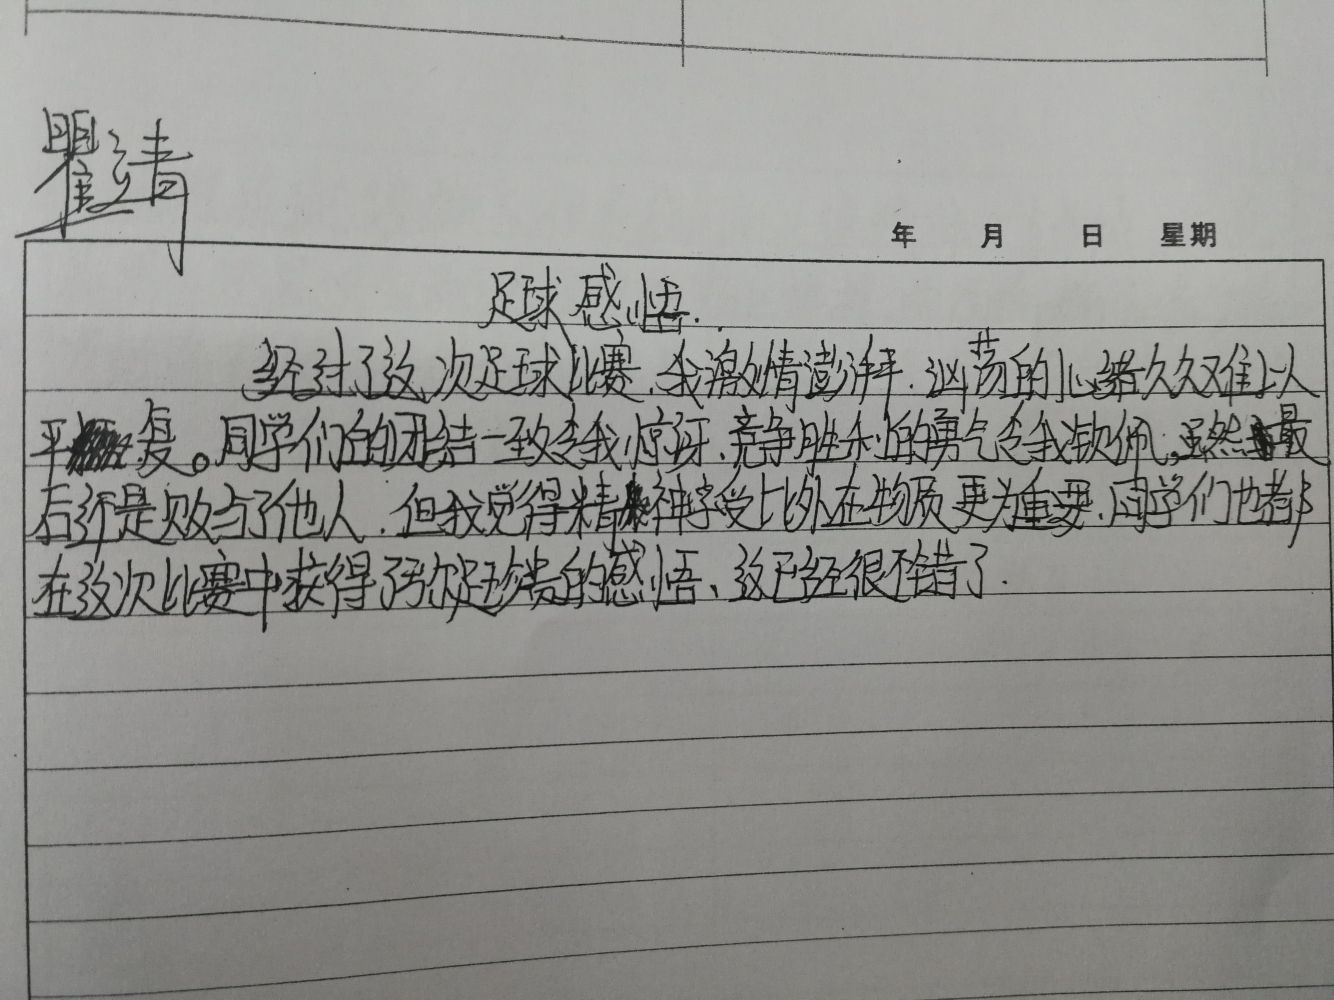 瞿靖
年 月 日 星期
足球感悟.
经过了这次足球比赛,我激情澎湃.汹荡的心绪久久难以
平复。同学们的团结一致令我惊讶,竞争胜利的勇气令我钦佩,虽然最
后还是败与了他人.但我觉得精神享受比外在物质更为重要.同学们也都
在这次比赛中获得了弥足珍贵的感悟、这已经很不错了.